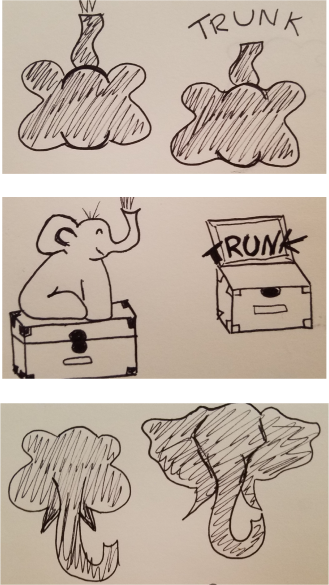 TRUNK
TRUNK